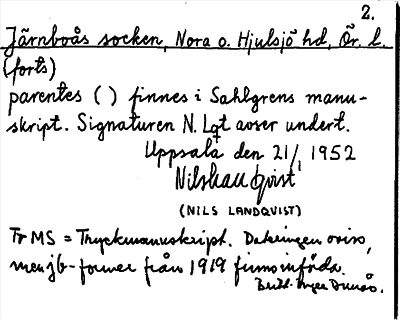 2.
Järnboås socken, Nora o. Hjulsjö hd, Ör. l.
(forts)
parentes ( ) finnes i Sahlgrens manu-
skript. Signaturen N. Lqt avser undert.
Uppsala den 21/1 1952
Nils Landqvist
(NILS LANDQVIST)
Tr MS = Tryckmanuskript. Dateringen oviss,
men jb-former från 1919 finns införda.
Berit